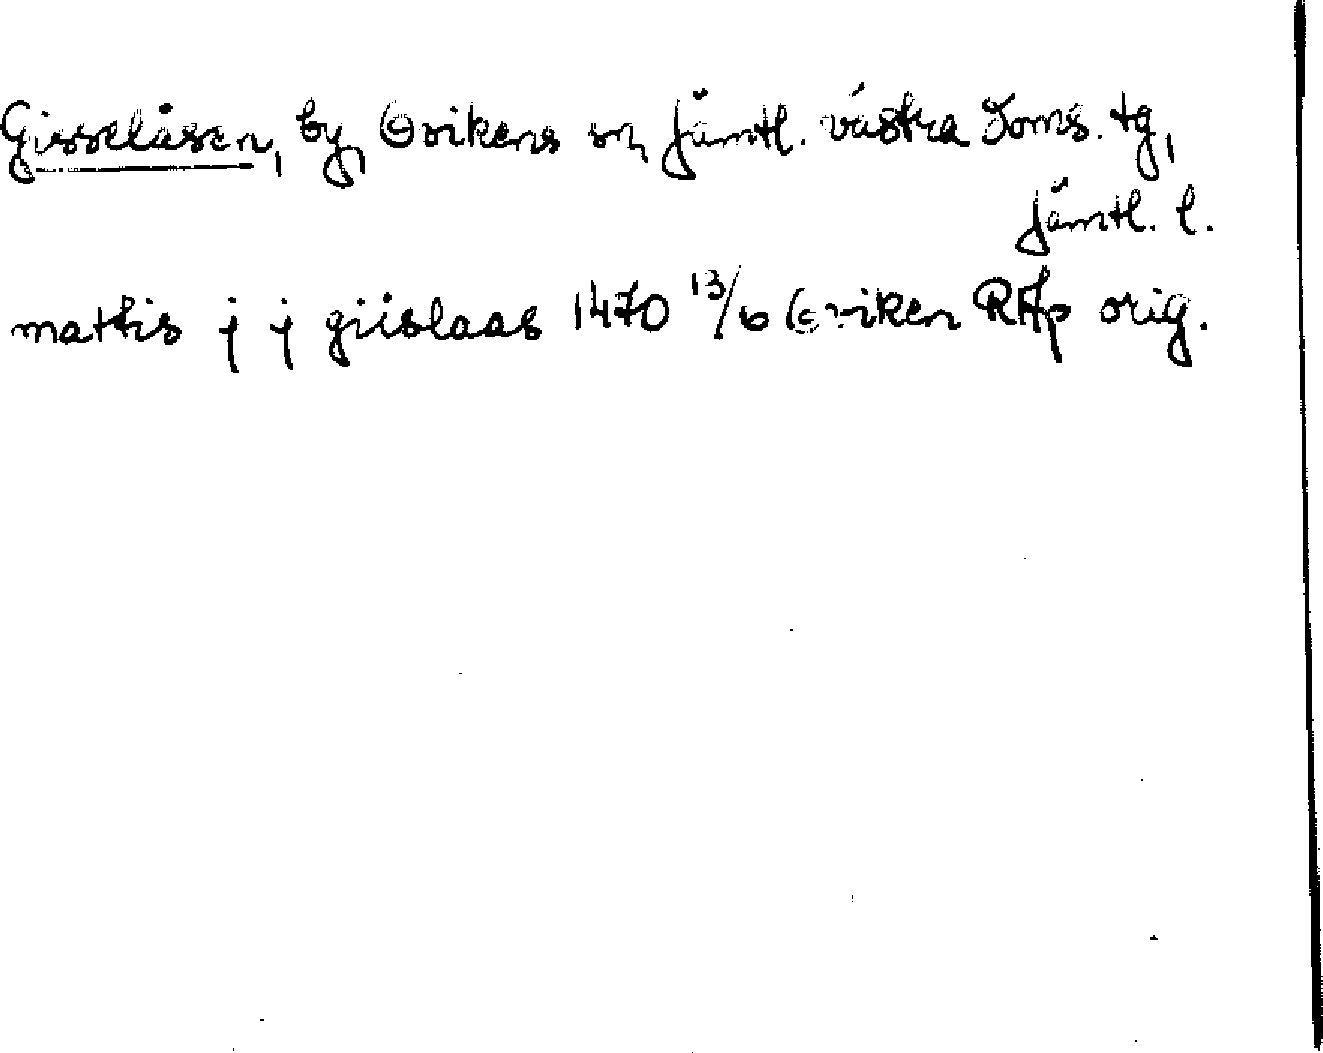 Gisselåsen, by, Ovikens sn, Jämtl. västra Doms. tg,
Jämtl. l.
mattis j j giislaas 1470 13/6 Oviken RAp orig.